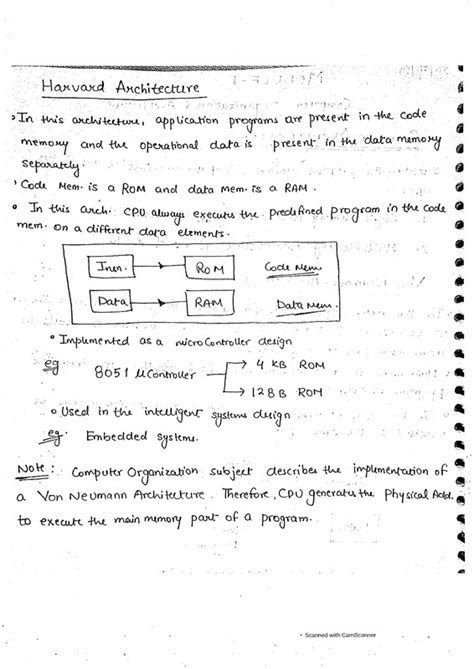 Harvard Architecture
• In this architecture, application programs are present in the code
memory and the operational data is present in the data memory
separately.
• Code Mem. is a ROM and data mem. is a RAM.
• In this arch. CPU always executes the predefined program in the code
mem. on a different data elements.
Insn. → ROM Code Mem.
Data → RAM Data Mem.
• Implemented as a microController design
eg 8051 μController → 4 KB ROM
→ 128 B ROM
• Used in the intelligent systems design
eg. Embedded systems.
Note: Computer Organization subject describes the implementation of
a Von Neumann Architecture. Therefore, CPU generates the Physical Add.
to execute the main memory part of a program.
Scanned with CamScanner